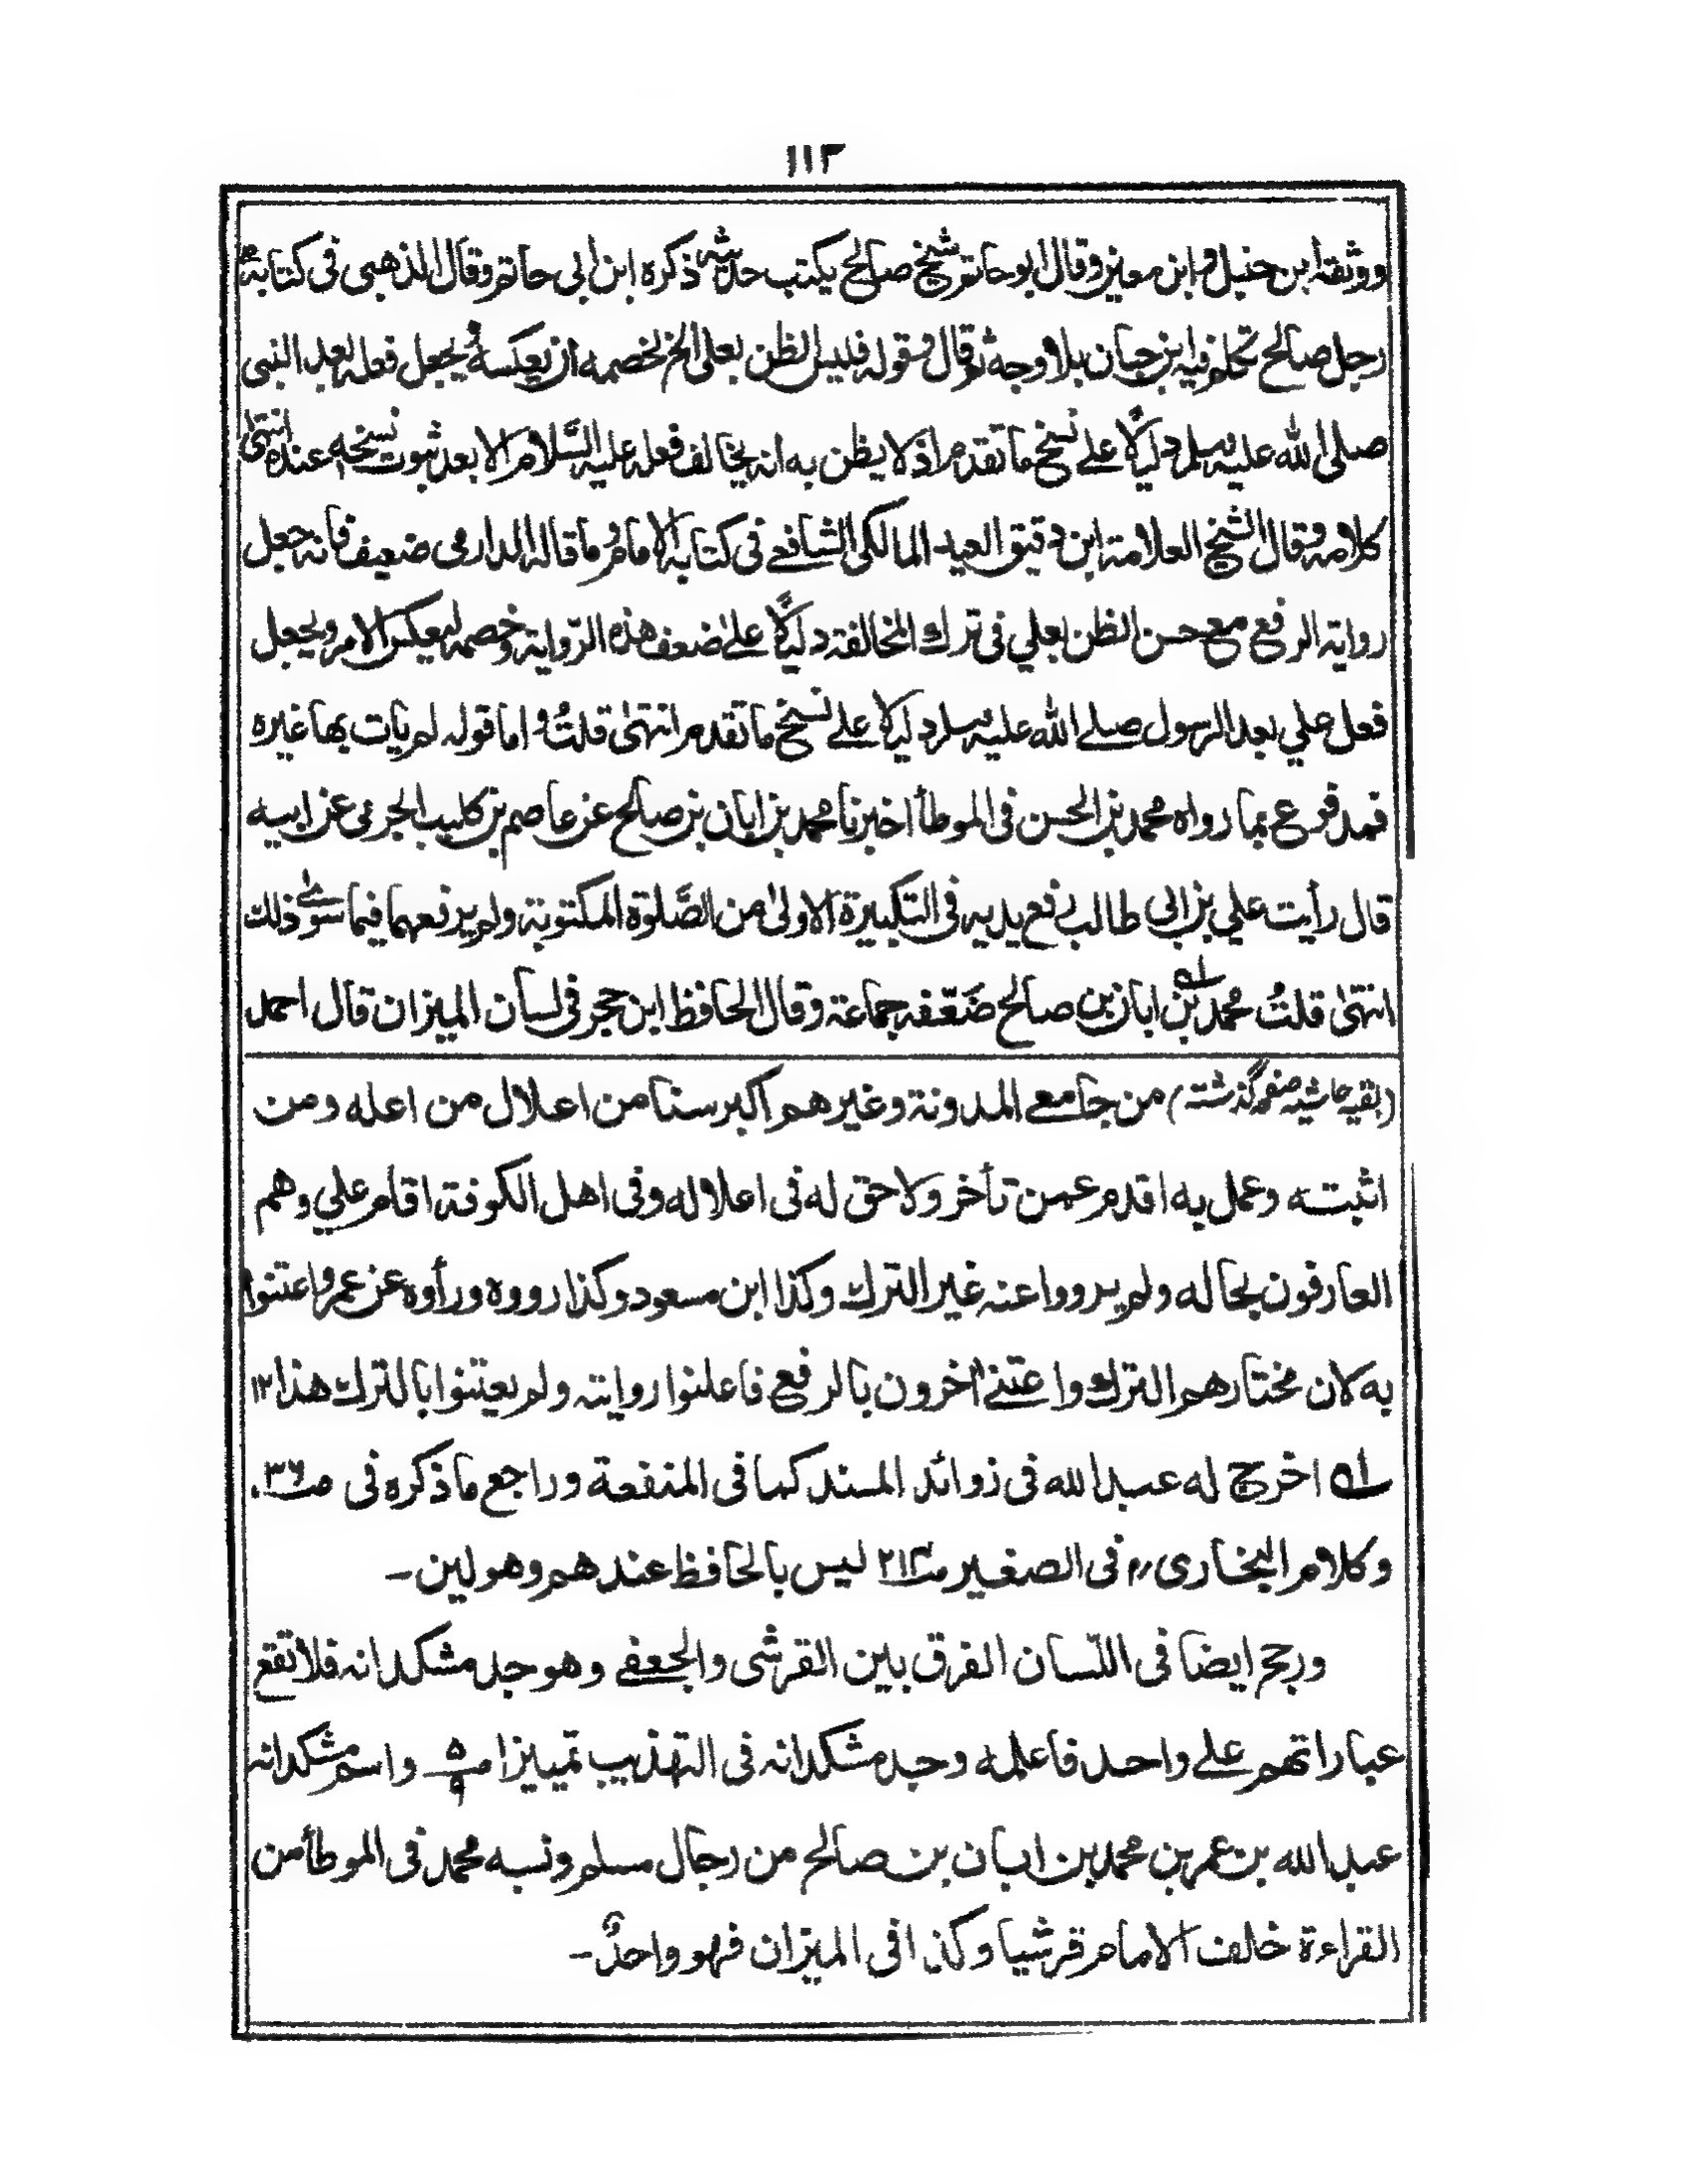 ١١٢
ووثقه ابن حنبل وابن معين وقال ابو حاتم شيخ صالح يكتب حديثه ذكره ابن ابى حاتم وقال الذهبى فى كتابه
رجل صالح تكلم فيه ابن حبان بلا وجه ثم قال وقوله فليس الظن بعلى الخ لخصمه ان يعكسه ويجعل فعله بعد النبى
صلى الله عليه وسلم دليلاً على نسخ ما تقدم اذ لا يظن به انه يخالف فعله عليه السّلام الا بعد ثبوت نسخه عنده انتهى
كلامه وقال الشيخ العلامة ابن دقيق العيد المالكى الشافعى فى كتابه الامام وما قاله الدارمى ضعيف فانه جعل
رواية الرفع مع حسن الظن بعلي فى ترك المخالفة دليلاً على ضعف هذه الرّواية وخصمه يعكس الامر ويجعل
فعل علي بعد الرسول صلى الله عليه وسلم دليلا على نسخ ما تقدم انتهىٰ قلتُ واما قوله لم يات بها غيره
فمدفوع بما رواه محمد بن الحسن فى الموطأ اخبرنا محمد بن ابان بن صالح عن عاصم بن كليب الجرمى عن ابيه
قال رأيت علي بن ابى طالب رفع يديه فى التكبيرة الاولىٰ من الصَّلوة المكتوبة ولم يرفعهما فيما سوىٰ ذلك
انتهىٰ قلتُ محمد بن ابان بن صالح ضَعّفه جماعة وقال الحافظ ابن حجر فى لسان الميزان قال احمد
(بقيه حاشيه صفحه گذشته) من جامعى المدونة وغيرهم اكبر سنا من اعلال من اعله ومن
اثبته وعمل به اقدم عمن تأخر ولا حق له فى اعلاله وفى اهل الكوفة اقام علي وهم
العارفون بحاله ولم يرووا عنه غير الترك وكذا ابن مسعود وكذا رووه ورأوه عن عمر واعتنوا
به لان مختارهم الترك واعتنى اٰخرون بالرفع فاعلنوا روايته ولم يعتنوا بالترك هذا ١٢
لـه اخرج له عبد الله فى زوائد المسند كما فى المنفعة وراجع ما ذكره فى
وكلام البخارى فى الصغير صـ ٢١٤ ليس بالحافظ عندهم وهو لين۔
ورجح ايضا فى اللّسان الفرق بين القرشى والجعفى وهو جد مشكدانه فلا تقع
عباراتهم على واحد فاعلمه وجد مشكدانه فى التهذيب تمييزا واسم مشكدانه
عبد الله بن عمر بن محمد بن ابان بن صالح من رجال مسلم ونسبه محمد فى الموطأ من
القراءة خلف الامام قرشيا وكذا فى الميزان فهو واحدٌ۔